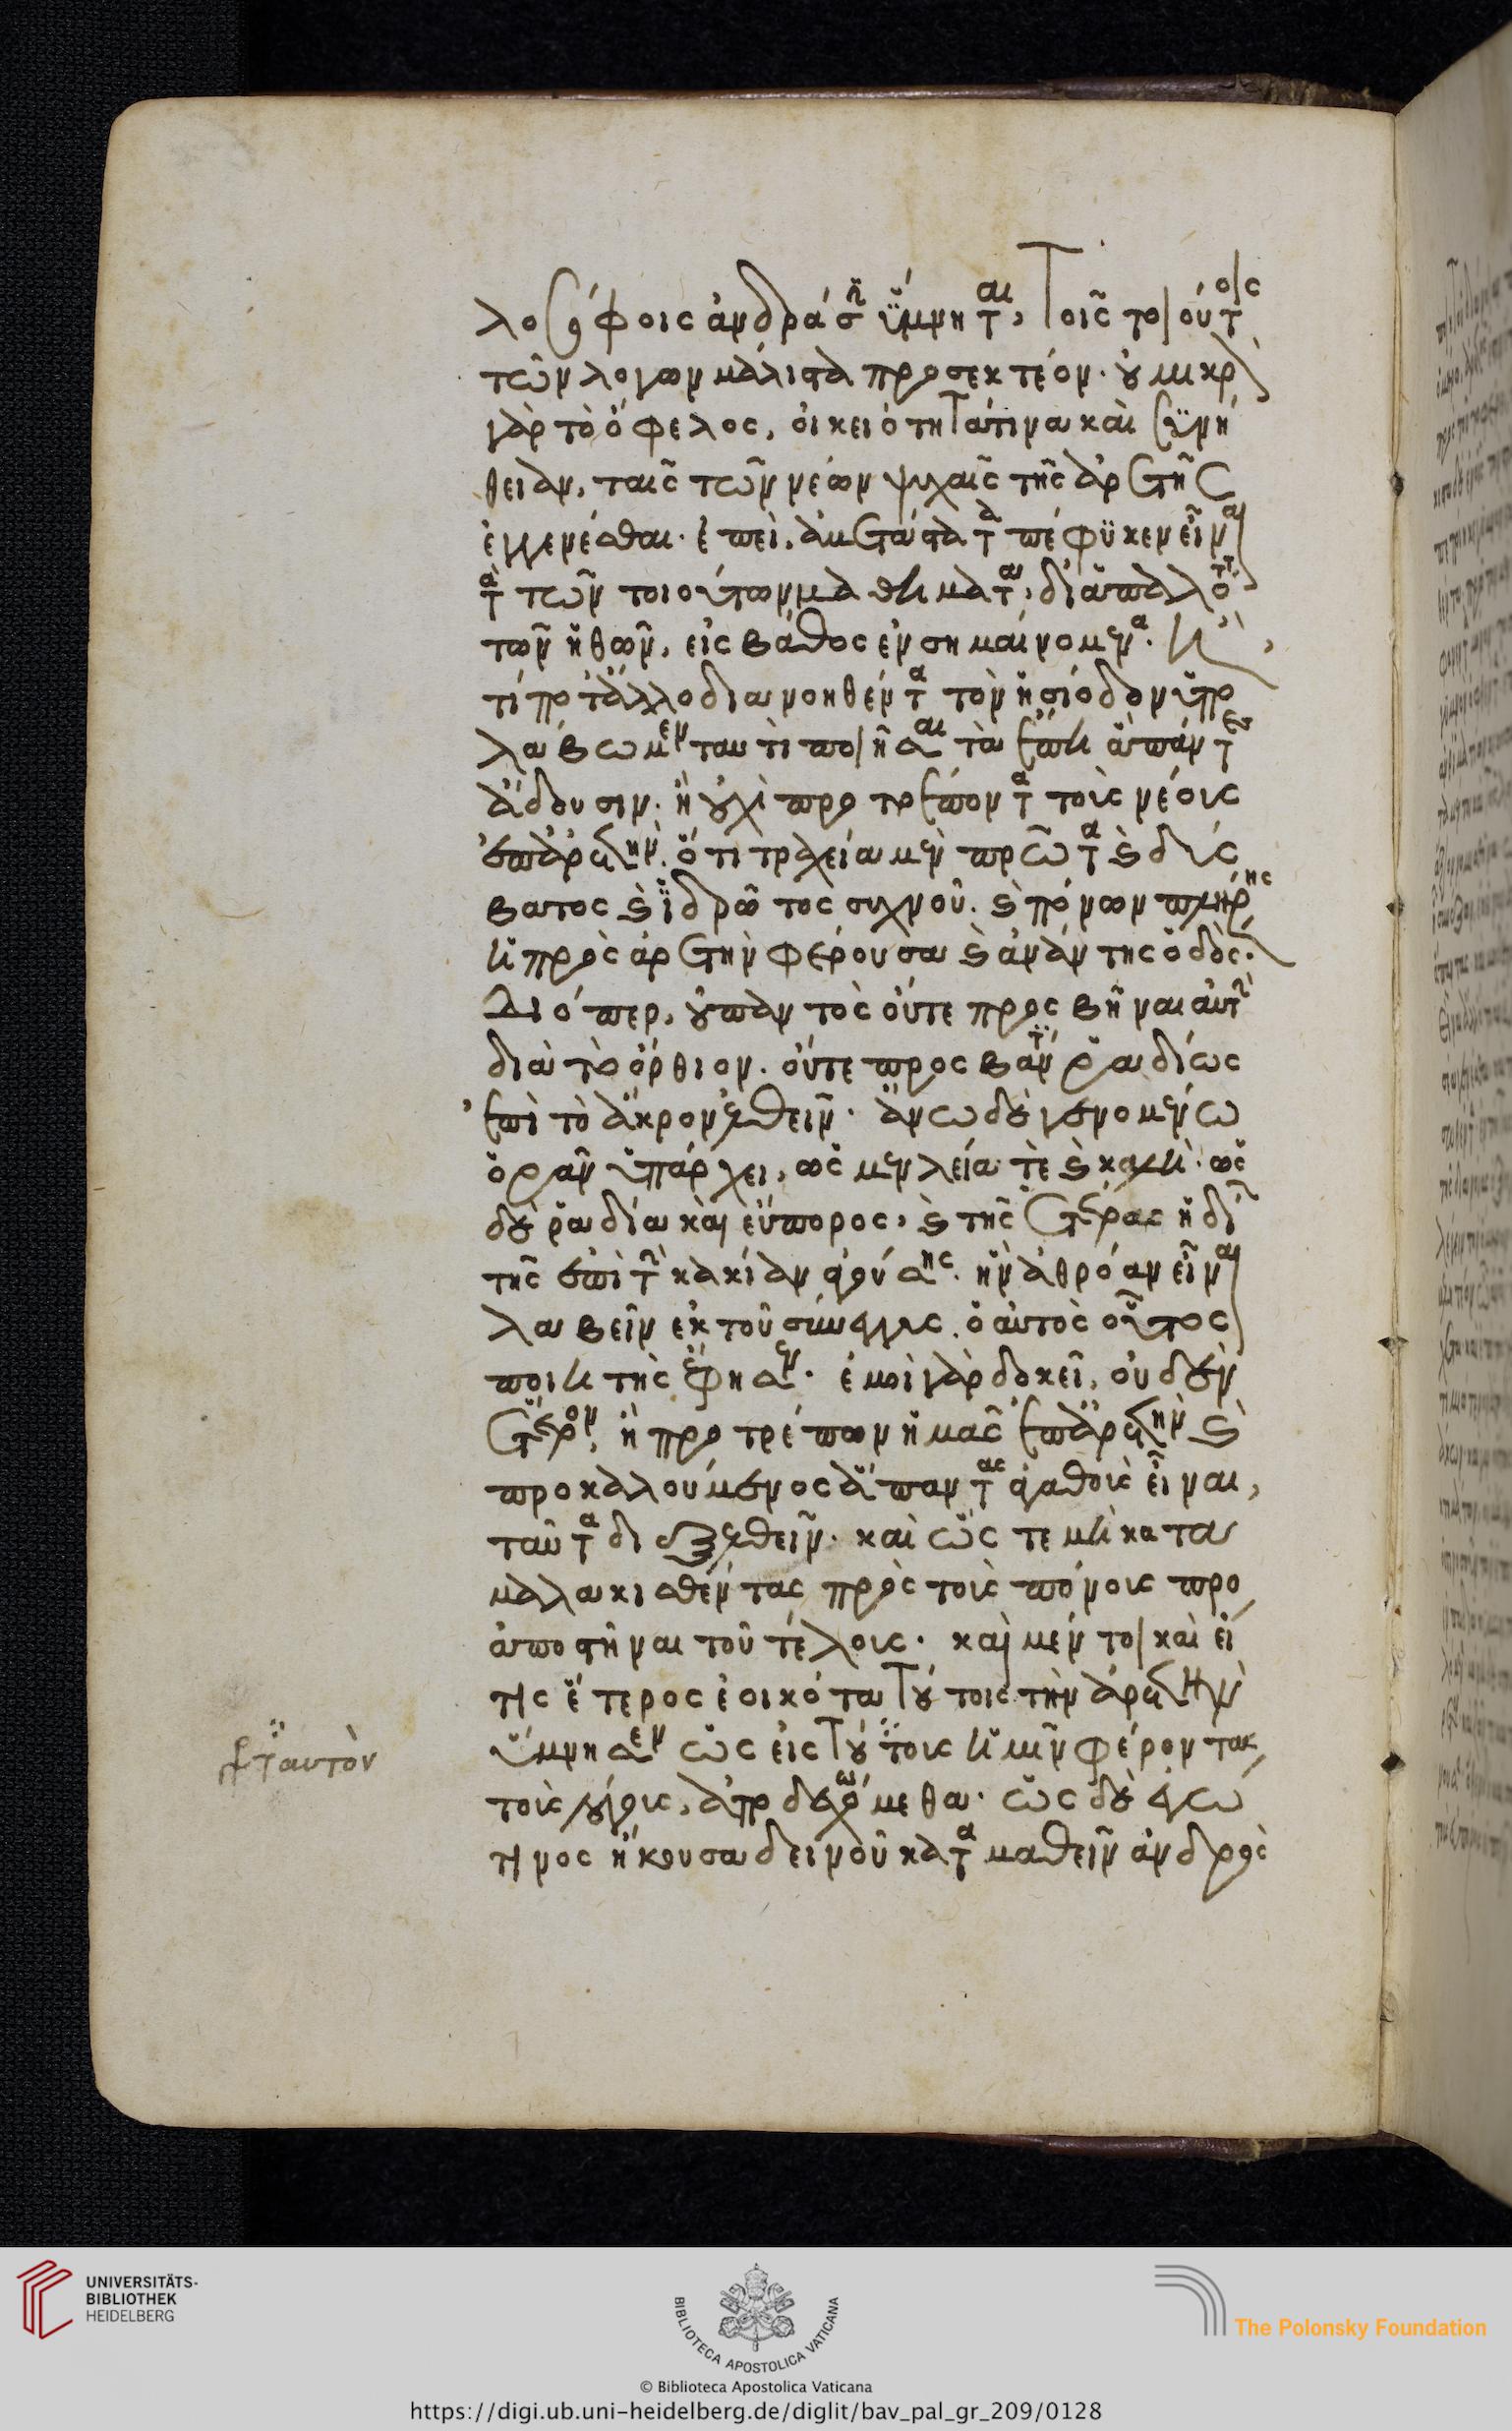 λοσόφοις ἀνδράσιν ὕμνηται, τοῖς τοιούτοις
τῶν λόγων μάλιστα προσεκτέον. οὐ μικρὸν
γὰρ τὸ ὄφελος, οἰκειότητά τινα καὶ συνή
θειαν, ταῖς τῶν νέων ψυχαῖς τῆς ἀρετῆς
ἐγγενέσθαι. ἐπεὶ ἀμετάστατα πέφυκεν εἶναι
τὰ τῶν τοιούτων μαθήματα, δι' ἁπαλότητα
τῶν ἠθῶν, εἰς βάθος ἐνσημαινόμενα. ἢ
τί ποτ' ἄλλο διανοηθέντα τὸν ἡσίοδον ὑπο
λάβωμεν ταυτὶ ποιῆσαι τὰ ἔπη ἃ πάντες
ἄδουσιν. ἢ οὐχὶ προτρέποντα τοὺς νέους
ἐπ' ἀρετήν. ὅτι τραχεῖα μὲν πρῶτα καὶ δύς
βατος καὶ ἱδρῶτος συχνοῦ. καὶ πόνων πλήρης
ἡ πρὸς ἀρετὴν φέρουσα καὶ ἀνάντης ὁδός.
Διόπερ, οὐ παντὸς οὔτε προσβῆναι αὐτῇ
διὰ τὸ ὄρθιον. οὔτε προσβάντι ῥαδίως
ἐπὶ τὸ ἄκρον ἐλθεῖν. ἄνω δὲ γενομένω
ὁρᾶν ὑπάρχει, ὡς μὲν λεία τὲ καὶ καλὴ. ὡς
δὲ ῥαδία καὶ εὔπορος, καὶ τῆς ἑτέρας ἡδίων
τῆς ἐπὶ τὴν κακίαν ἀγούσης. ἣν ἀθρόαν εἶναι
λαβεῖν ἐκ τοῦ σύνεγγυς. ὁ αὐτὸς οὗτος
ποιητὴς ἔφησεν. ἐμοὶ γὰρ δοκεῖ, οὐδὲν
ἕτερον, ἢ προτρέπων ἡμᾶς ἐπ' ἀρετὴν καὶ
προκαλούμενος ἅπαντας ἀγαθοὺς εἶναι,
ταῦτα διεξελθεῖν. καὶ ὥςτε μὴ κατα
μαλακισθέντας πρὸς τοὺς πόνους προ
αποστῆναι τοῦ τέλους. καὶ μέν τοι καὶ εἴ
τις ἕτερος ἐοικότα τούτοις τὴν ἀρετὴν
ὕμνησεν ὡς εἰς τούτοις ἡμῖν φέροντας
τοὺς λόγους, ἀποδεχώμεθα. ὡς δὲ ἐγώ
τινος ἤκουσα δεινοῦ καταμαθεῖν ἀνδρὸς
ἐς ταυτὸν
UNIVERSITÄTS-
BIBLIOTHEK
HEIDELBERG
BIBLIOTECA APOSTOLICA VATICANA
The Polonsky Foundation
© Biblioteca Apostolica Vaticana
https://digi.ub.uni-heidelberg.de/diglit/bav_pal_gr_209/0128